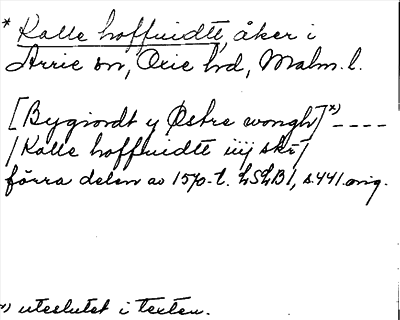 * Kalle hoffuidtt, åker i
Arrie sn, Oxie hd, Malm. l.
[Bygiordt y Østre wongh]*) ----
/Kalle hoffuidtt iiij skr/
förra delen av 1570-t. LSLB1, s.441.orig.
*) uteslutet i texten.